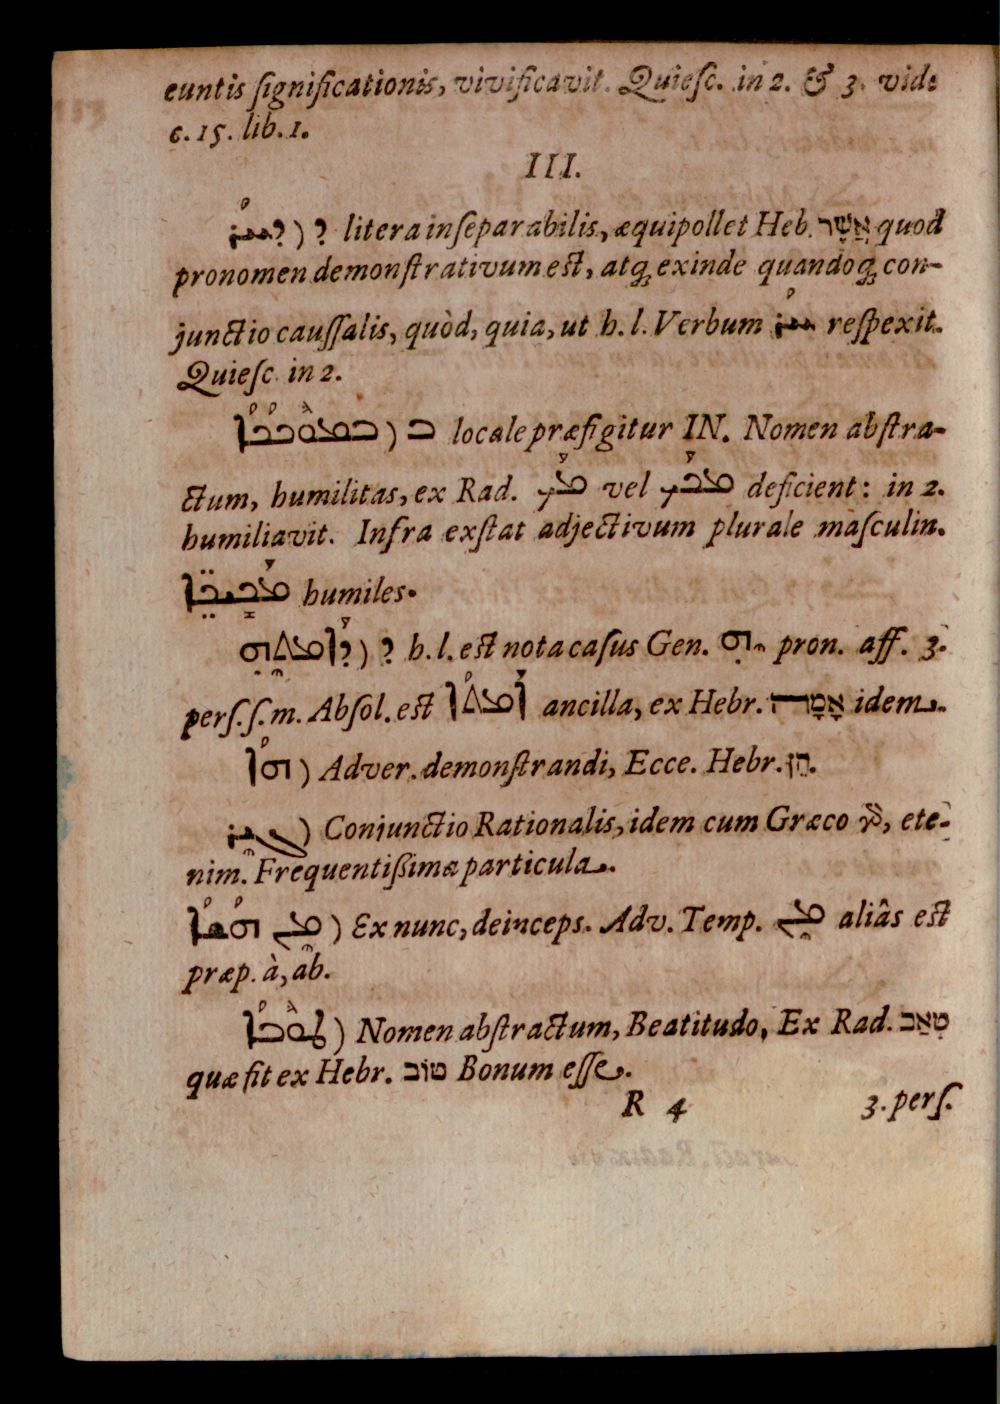 euntis ſignificationis, vivificavit. Quieſc. in 2. & 3. vide
c. 15. lib. 1.
III.
ܕܚܳܪ ) ܕ litera inſeparabilis, æquipollet Heb. אֲשֶׁר quod
pronomen demonſtrativum est, atq; exinde quandoq; con-
junctio cauſſalis, quòd, quia, ut h. l. Verbum ܚܳܪ reſpexit.
Quieſc. in 2.
ܒܡܘܟܟܐ ) ܒ locale præfigitur IN. Nomen abſtra-
ctum, humilitas, ex Rad. ܡܟ vel ܡܟܟ deficient: in 2.
humiliavit. Infra exſtat adjectivum plurale maſculin.
ܡܟܝܟܐ humiles.
ܕܐܡܬܗ ) ܕ h. l. est nota caſus Gen. ܗ pron. aff. 3.
perſ. ſ. m. Abſol. est ܐܡܬܐ ancilla, ex Hebr. אָמָה idem.
ܗܳܐ ) Adver. demonſtrandi, Ecce. Hebr. הֵן.
ܓܝܪ ) Conjunctio Rationalis, idem cum Græco γδ, ete-
nim. Frequentißima particula.
ܡܢ ܗܳܫܳܐ ) Ex nunc, deinceps. Adv. Temp. ܡܢ aliâs est
præp. à, ab.
ܛܘܒܐ ) Nomen abſtractum, Beatitudo, Ex Rad. טְאַב
quæ fit ex Hebr. טוֹב Bonum eſſe.
R 4 3. perſ.